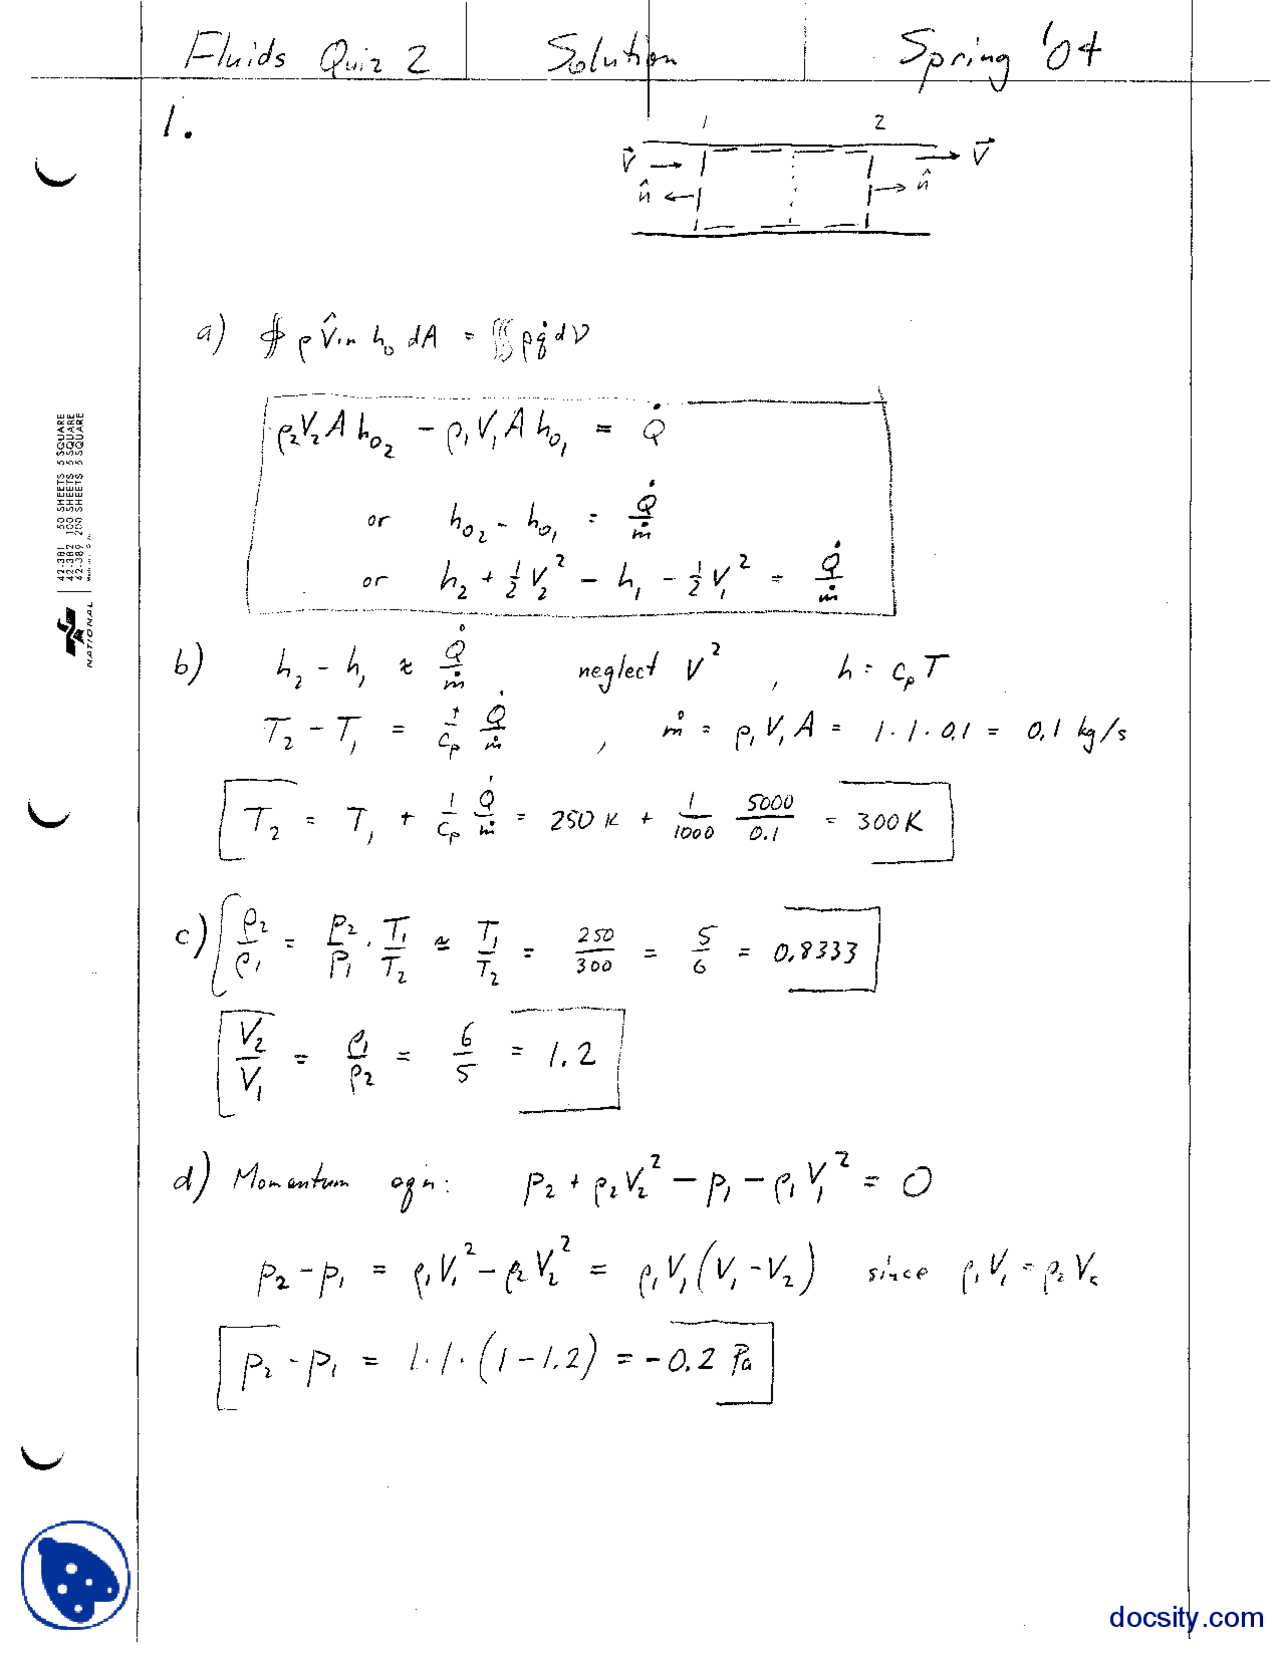 Fluids Quiz 2 Solution Spring '04
1.
1 2
V⃗ → → V⃗
n̂ ← → n̂
a) ∯ ρ V̂·n h₀ dA = ∭ ρ q̇ dV
ρ₂V₂A h₀₂ − ρ₁V₁A h₀₁ = Q̇
or h₀₂ − h₀₁ = Q̇/ṁ
or h₂ + ½V₂² − h₁ − ½V₁² = Q̇/ṁ
b) h₂ − h₁ ≈ Q̇/ṁ neglect V² , h = cₚT
T₂ − T₁ = 1/cₚ Q̇/ṁ , ṁ = ρ₁V₁A = 1·1·0.1 = 0.1 kg/s
T₂ = T₁ + 1/cₚ Q̇/ṁ = 250 K + 1/1000 5000/0.1 = 300K
c) ρ₂/ρ₁ = P₂/P₁ · T₁/T₂ ≈ T₁/T₂ = 250/300 = 5/6 = 0.8333
V₂/V₁ = ρ₁/ρ₂ = 6/5 = 1.2
d) Momentum eqn: p₂ + ρ₂V₂² − p₁ − ρ₁V₁² = 0
p₂ − p₁ = ρ₁V₁² − ρ₂V₂² = ρ₁V₁(V₁ − V₂) since ρ₁V₁ = ρ₂V₂
p₂ − p₁ = 1·1·(1 − 1.2) = −0.2 Pa
42-381 50 SHEETS 5 SQUARE
42-382 100 SHEETS 5 SQUARE
42-389 200 SHEETS 5 SQUARE
NATIONAL
docsity.com